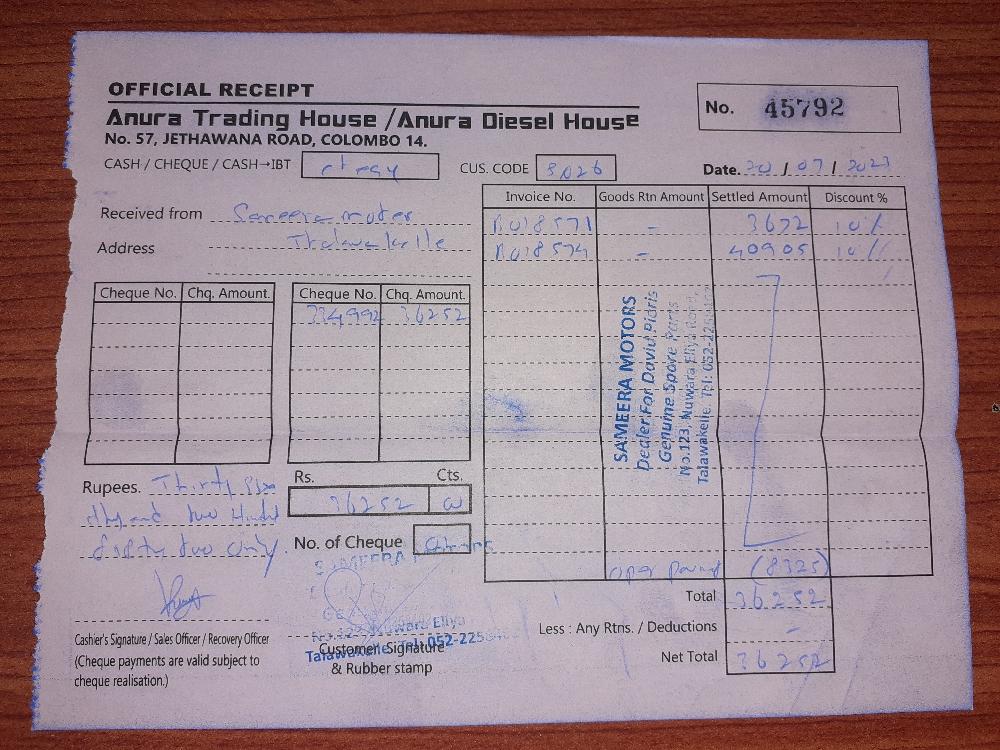 OFFICIAL RECEIPT
Anura Trading House / Anura Diesel House
No. 57, JETHAWANA ROAD, COLOMBO 14.
No. 45792
CASH / CHEQUE / CASH→IBT
CUS. CODE 3026
Date. 20 / 07 / 2023
Received from Sameera motor
Address Thalawakelle
Invoice No. Goods Rtn Amount Settled Amount Discount %
B018571 - 3672 10%
B018574 - 40905 10%
Cheque No. Chq. Amount. Cheque No. Chq. Amount.
334992 36252
SAMEERA MOTORS
Dealer For David Pidris
Genuine Spare Parts
No.123, Nuwara Eliya Road,
Talawakelle. Tel: 052-22
Rupees. Thirty Six
two
two only.
Rs. Cts.
36252
No. of Cheque
SAMEERA
Nuwara Eliya
Talawakelle Tel: 052-225
(8325)
Total 36252
Less : Any Rtns. / Deductions -
Net Total 36252
Cashier's Signature / Sales Officer / Recovery Officer
(Cheque payments are valid subject to
cheque realisation.)
Customer Signature
& Rubber stamp